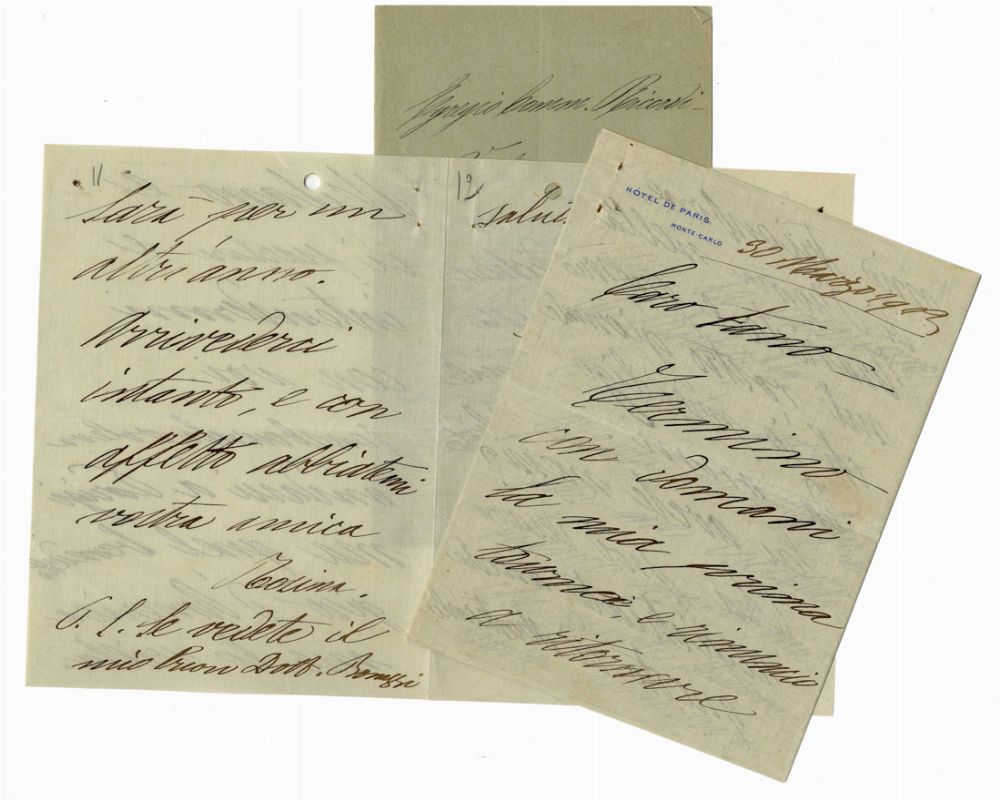 Egregio Comm. Ricordi
11
Sarà per un
altr'anno.
Arrivederci
intanto, e con
affetto abbiatemi
vostra amica
Rosina.
P. S. Se vedete il
mio Dott.
12
salut
HÔTEL DE PARIS
MONTE-CARLO
30 Marzo 1903
Caro
Termino
con domani
la mia prima
tournée, e rinuncio
a ritornare